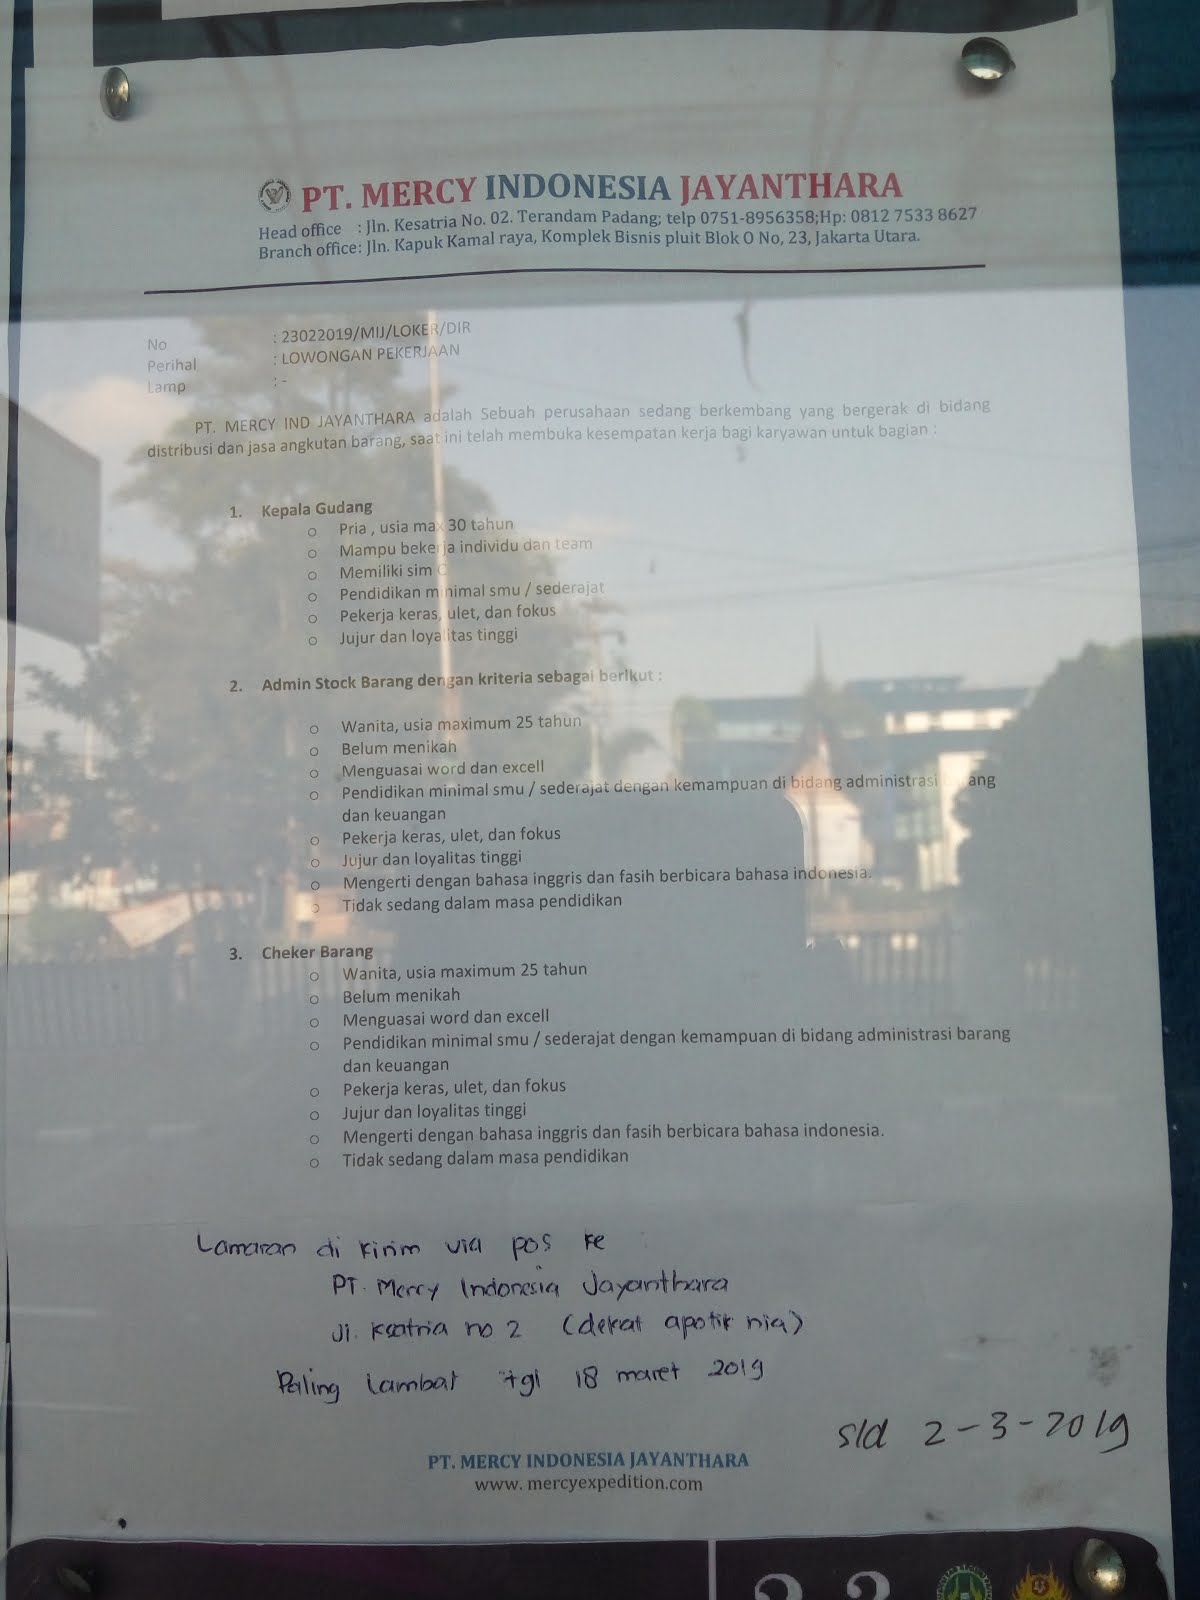 PT. MERCY INDONESIA JAYANTHARA
Head office : Jln. Kesatria No. 02. Terandam Padang; telp 0751-8956358;Hp: 0812 7533 8627
Branch office: Jln. Kapuk Kamal raya, Komplek Bisnis pluit Blok O No, 23, Jakarta Utara.
No : 23022019/MIJ/LOKER/DIR
Perihal : LOWONGAN PEKERJAAN
Lamp : -
PT. MERCY IND JAYANTHARA adalah Sebuah perusahaan sedang berkembang yang bergerak di bidang
distribusi dan jasa angkutan barang, saat ini telah membuka kesempatan kerja bagi karyawan untuk bagian :
1. Kepala Gudang
o Pria , usia max 30 tahun
o Mampu bekerja individu dan team
o Memiliki sim C
o Pendidikan minimal smu / sederajat
o Pekerja keras, ulet, dan fokus
o Jujur dan loyalitas tinggi
2. Admin Stock Barang dengan kriteria sebagai berikut :
o Wanita, usia maximum 25 tahun
o Belum menikah
o Menguasai word dan excell
o Pendidikan minimal smu / sederajat dengan kemampuan di bidang administrasi barang
dan keuangan
o Pekerja keras, ulet, dan fokus
o Jujur dan loyalitas tinggi
o Mengerti dengan bahasa inggris dan fasih berbicara bahasa indonesia.
o Tidak sedang dalam masa pendidikan
3. Cheker Barang
o Wanita, usia maximum 25 tahun
o Belum menikah
o Menguasai word dan excell
o Pendidikan minimal smu / sederajat dengan kemampuan di bidang administrasi barang
dan keuangan
o Pekerja keras, ulet, dan fokus
o Jujur dan loyalitas tinggi
o Mengerti dengan bahasa inggris dan fasih berbicara bahasa indonesia.
o Tidak sedang dalam masa pendidikan
Lamaran di kirim via pos ke
PT. Mercy Indonesia Jayanthara
Jl. Ksatria no 2 (dekat apotik nia)
Paling Lambat tgl 18 maret 2019
s/d 2-3-2019
PT. MERCY INDONESIA JAYANTHARA
www. mercyexpedition.com